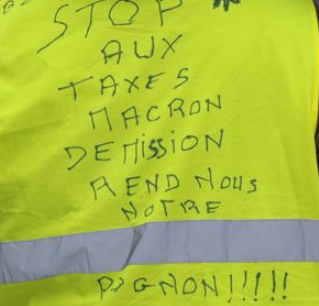 STOP
AUX
TAXES
MACRON
DEMISSION
REND NOUS
NOTRE
POGNON!!!!!